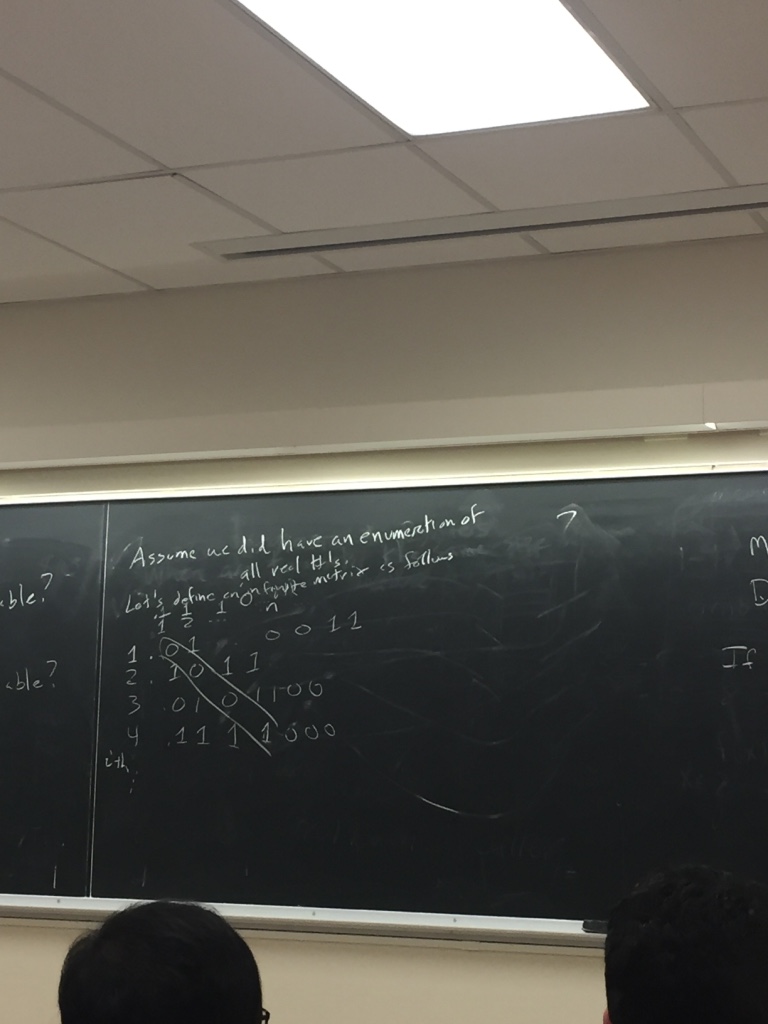 able?
able?
Assume we did have an enumeration of
all real #'s.
Let's define an infinite matrix as follows
1 2 ... n
1 . 0 1 0 0 1 1
2 . 1 0 1 1
3 . 0 1 0 1 1 0 0
4 . 1 1 1 1 0 0 0
ith
⋮
7
M
D
If